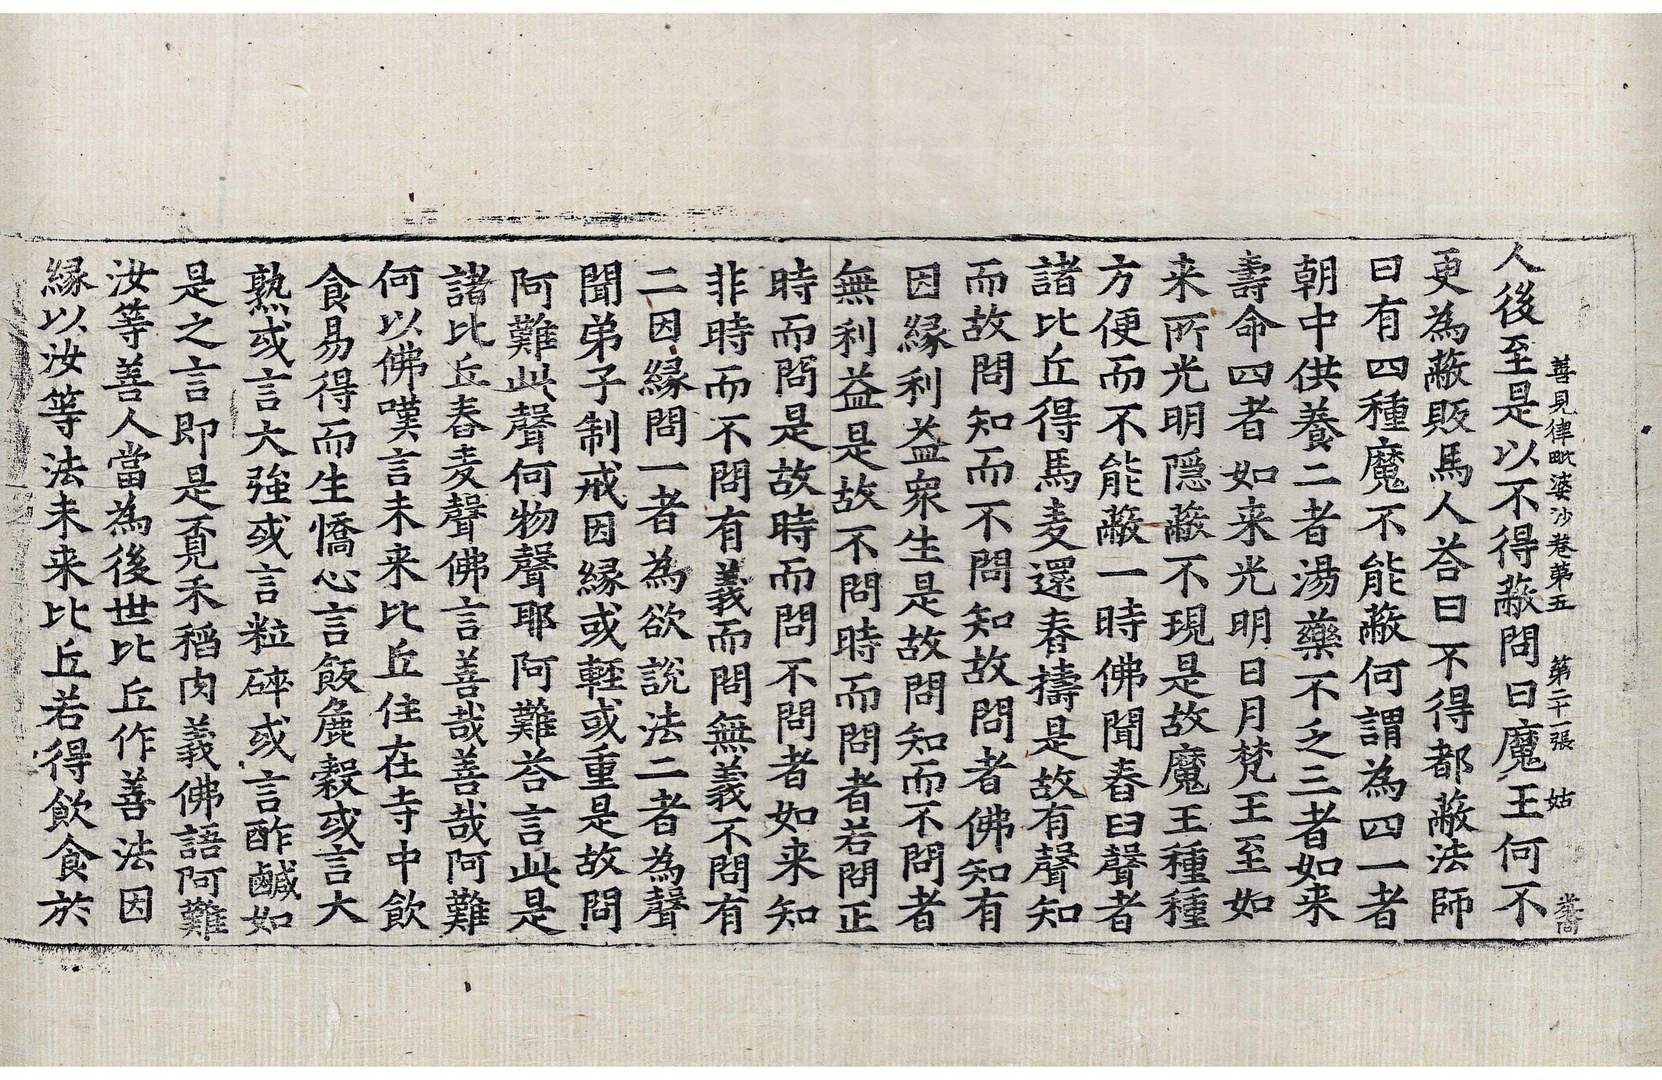 善見律毗婆沙卷第五　第二十張　姑
人後至是以不得蔽問曰魔王何不
更為蔽販馬人荅曰不得都蔽法師
曰有四種魔不能蔽何謂為四一者
朝中供養二者湯藥不乏三者如来
壽命四者如来光明日月梵王至如
来所光明隱蔽不現是故魔王種種
方便而不能蔽一時佛聞舂臼聲者
諸比丘得馬麦還舂擣是故有聲知
而故問知而不問知故問者佛知有
因緣利益衆生是故問知而不問者
無利益是故不問時而問者若問正
時而問是故時而問不問者如来知
非時而不問有義而問無義不問有
二因緣問一者為欲說法二者為聲
聞弟子制戒因緣或輕或重是故問
阿難此聲何物聲耶阿難荅言此是
諸比丘舂麦聲佛言善哉善哉阿難
何以佛嘆言未来比丘住在寺中飲
食易得而生憍心言飯麁穀或言大
熟或言大強或言粒碎或言酢鹹如
是之言即是覔禾稻肉義佛語阿難
汝等善人當為後世比丘作善法因
緣以汝等法未来比丘若得飲食於